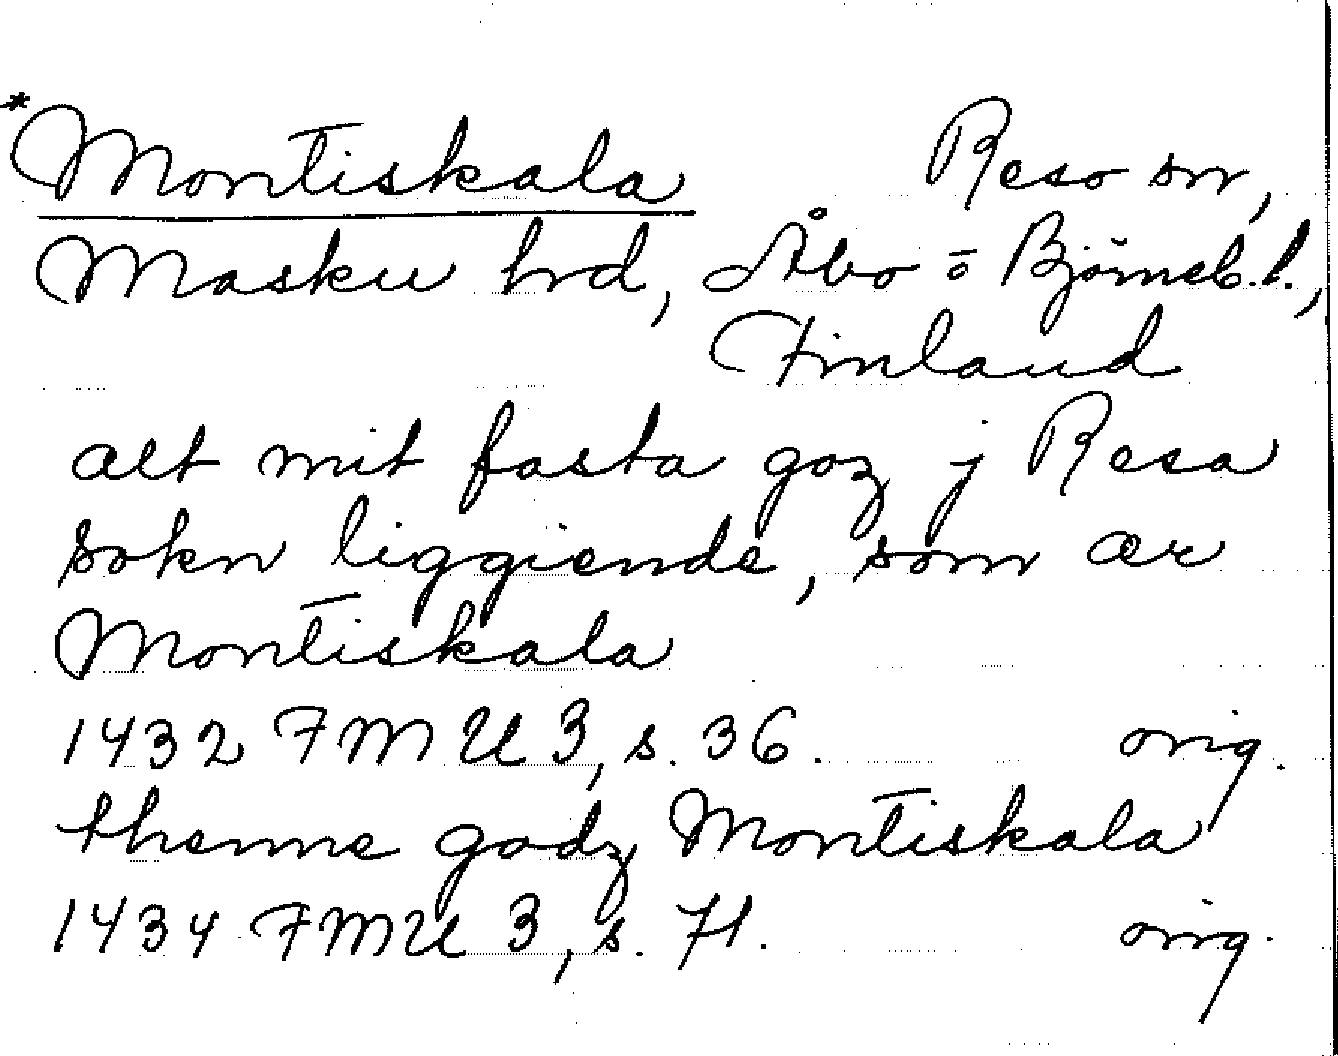 *Montiskala Reso sn,
Masku hrd, Åbo o Björneb.l.,
Finland
alt mit fasta goz j Resa
sokn liggiende, som ær
Montiskala
1432 FMU 3, s. 36. orig.
thenne godz Montiskala
1434 FMU 3, s. 71. orig.